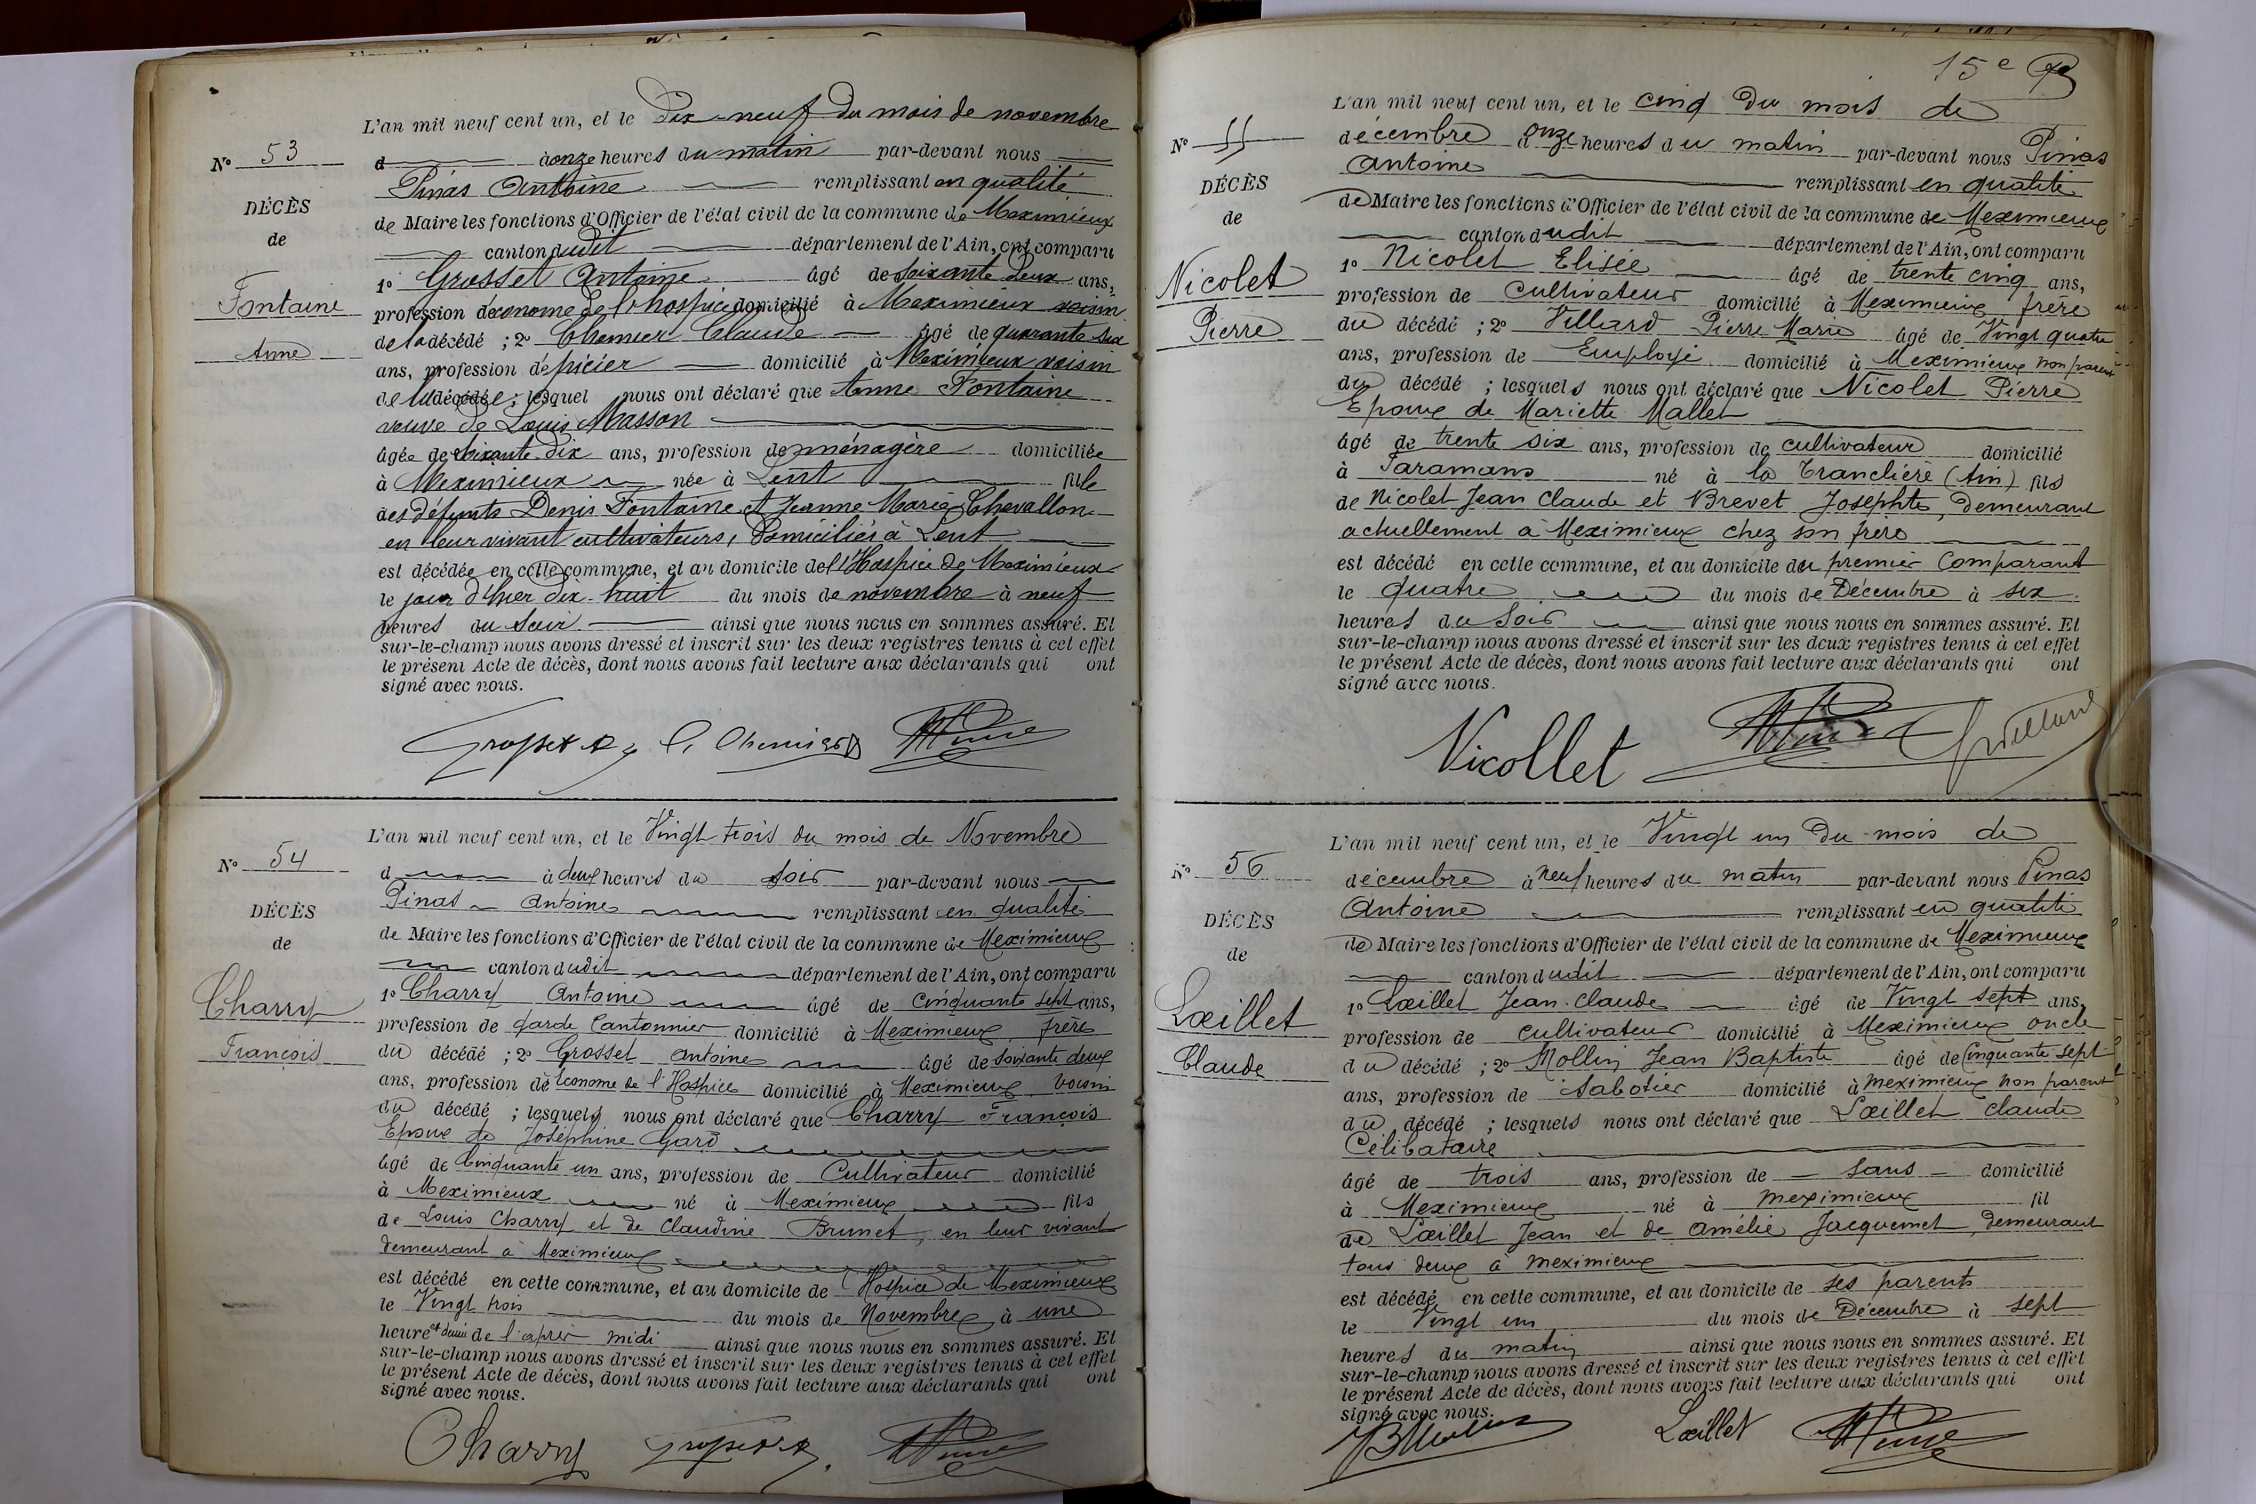 L'an mil neuf cent un, et le Dix-neuf du mois de novembre
N° 53
d à onze heures du matin par-devant nous
Pinas Antoine remplissant en qualité
DÉCÈS
de Maire les fonctions d'Officier de l'état civil de la commune de Meximieux
de
canton dudit département de l'Ain, ont comparu
1° Grosset Antoine âgé de soixante deux ans,
Fontaine
profession d'économe de l'hospice domicilié à Meximieux voisin
de la décédé ; 2° Chemier Claude âgé de quarante six
Anne
ans, profession d'épicier domicilié à Meximieux voisin
de la décédée ; lesquel nous ont déclaré que Anne Fontaine
veuve de Louis Masson
âgée de soixante-dix ans, profession de ménagère domiciliée
à Meximieux née à Lent fille
des défunts Denis Fontaine et Jeanne Marie Chevallon
en leur vivant cultivateurs, domiciliés à Lent
est décédée en cette commune, et au domicile de l'Hospice de Meximieux
le jour d'hier dix-huit du mois de novembre à neuf
heures du soir ainsi que nous nous en sommes assuré. Et
sur-le-champ nous avons dressé et inscrit sur les deux registres tenus à cet effet
le présent Acte de décès, dont nous avons fait lecture aux déclarants qui ont
signé avec nous.
Grosset A C. Chemier
L'an mil neuf cent un, et le Vingt trois du mois de Novembre
N° 54
d à deux heures du soir par-devant nous
Pinas Antoine remplissant en qualité
DÉCÈS
de Maire les fonctions d'Officier de l'état civil de la commune de Meximieux
de
canton dudit département de l'Ain, ont comparu
1° Charry Antoine âgé de cinquante sept ans,
Charry
profession de garde Cantonnier domicilié à Meximieux frère
François
du décédé ; 2° Grosset Antoine âgé de soixante deux
ans, profession de Econome de l'Hospice domicilié à Meximieux voisin
du décédé ; lesquels nous ont déclaré que Charry François
Epoux de Joséphine Gard
âgé de Cinquante un ans, profession de Cultivateur domicilié
à Meximieux né à Meximieux fils
de Louis Charry et de Claudine Brunet, en leur vivant
demeurant à Meximieux
est décédé en cette commune, et au domicile de Hospice de Meximieux
le Vingt trois du mois de Novembre à une
heure et demie de l'après midi ainsi que nous nous en sommes assuré. Et
sur-le-champ nous avons dressé et inscrit sur les deux registres tenus à cet effet
le présent Acte de décès, dont nous avons fait lecture aux déclarants qui ont
signé avec nous.
Charry Grosset A
15e
L'an mil neuf cent un, et le cinq du mois de
N° 55
décembre à onze heures du matin par-devant nous Pinas
Antoine remplissant en qualité
DÉCÈS
de Maire les fonctions d'Officier de l'état civil de la commune de Meximieux
de
canton dudit département de l'Ain, ont comparu
1° Nicolet Elisée âgé de trente cinq ans,
Nicolet
profession de Cultivateur domicilié à Meximieux frère
Pierre
du décédé ; 2° Villard Pierre Marie âgé de Vingt quatre
ans, profession de Employé domicilié à Meximieux non parent
du décédé ; lesquels nous ont déclaré que Nicolet Pierre
Epoux de Mariette Mallet
âgé de trente six ans, profession de cultivateur domicilié
à Faramans né à la Tranclière (Ain) fils
de Nicolet Jean Claude et Brevet Josephte, demeurant
actuellement à Meximieux chez son frère
est décédé en cette commune, et au domicile du premier Comparant
le quatre du mois de Décembre à six
heures du Soir ainsi que nous nous en sommes assuré. Et
sur-le-champ nous avons dressé et inscrit sur les deux registres tenus à cet effet
le présent Acte de décès, dont nous avons fait lecture aux déclarants qui ont
signé avec nous.
Nicollet
L'an mil neuf cent un, et le Vingt un du mois de
N° 56
décembre à neuf heures du matin par-devant nous Pinas
Antoine remplissant en qualité
DÉCÈS
de Maire les fonctions d'Officier de l'état civil de la commune de Meximieux
de
canton dudit département de l'Ain, ont comparu
1° Lœillet Jean-Claude âgé de Vingt sept ans,
Lœillet
profession de cultivateur domicilié à Meximieux oncle
Claude
du décédé ; 2° Mollin Jean Baptiste âgé de Cinquante sept
ans, profession de Sabotier domicilié à meximieux non parent
du décédé ; lesquels nous ont déclaré que Lœillet Claude
Célibataire
âgé de trois ans, profession de sans domicilié
à Meximieux né à meximieux fil
de Lœillet Jean et de Amélie Jacquemet, demeurant
tous deux à meximieux
est décédé en cette commune, et au domicile de ses parents
le Vingt un du mois de Décembre à sept
heures du matin ainsi que nous nous en sommes assuré. Et
sur-le-champ nous avons dressé et inscrit sur les deux registres tenus à cet effet
le présent Acte de décès, dont nous avons fait lecture aux déclarants qui ont
signé avec nous.
Lœillet